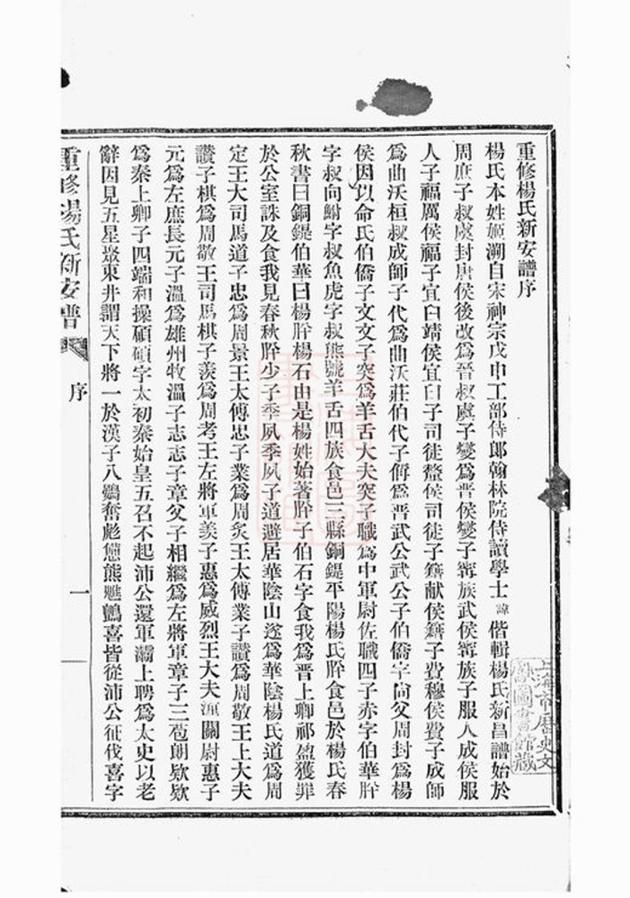 重修楊氏新安譜序
楊氏本姓姬溯自宋神宗戊申工部侍郎翰林院侍讀學士諱偕輯楊氏新昌譜始於
周庶子叔虞封唐侯後改爲晉叔虞子燮爲晋侯燮子甯族武侯甯族子服人成侯服
人子福厲侯福子宜臼靖侯宜臼子司徒釐侯司徒子籍献侯籍子費穆侯費子成師
爲曲沃桓叔成師子代爲曲沃莊伯代子偁爲晋武公武公子伯僑字尙父周封爲楊
侯因以命氏伯僑子文文子突爲羊舌大夫突子職爲中軍尉佐職四子赤字伯華肸
字叔向鮒字叔魚虎字叔熊號羊舌四族食邑三縣銅鍉平陽楊氏肸食邑於楊氏春
秋書曰銅鍉伯華曰楊肸楊石由是楊姓始著肸子伯石字食我爲晋上卿祁盈獲罪
於公室誅及食我見春秋肸少子季夙季夙子道避居華陰山遂爲華陰楊氏道繼
定王大司馬道子忠爲周景王太傅忠子業爲周炙王太傅業子讚爲周敬王上大夫
讚子棋爲周敬王司馬棋子羨爲周考王左將軍羨子惠爲威烈王大夫涖關尉惠子
元爲左庶長元子溫爲雄州牧溫子志志子章父子相繼爲左將軍章子三苞朗欵欵
爲秦上卿子四端和操碩碩字太初秦始皇五召不起沛公還軍灞上聘爲太史以老
辭因見五星聚東井謂天下將一於漢子八鷃奮彪熊鶤喜皆從沛公征伐喜字
重修楊氏新安譜
序
一
上海市歷史文
獻圖書館藏